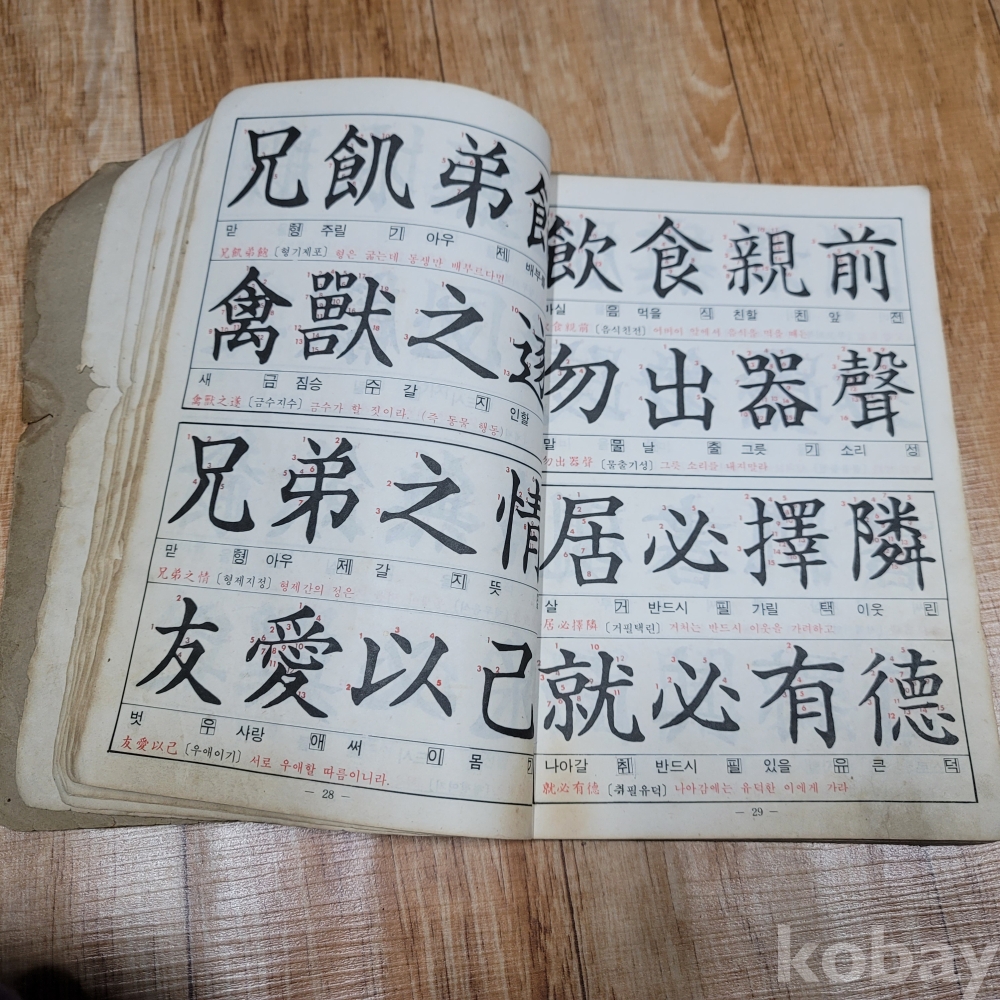 兄飢弟飽
맏 형 주릴 기 아우 제 배부
兄飢弟飽 [형기제포] 형은 굶는데 동생만 배부르다면
禽獸之遂
새 금 짐승 수 갈 지 인할
禽獸之遂 [금수지수] 금수가 할 짓이라. (즉 동물 행동)
兄弟之情
맏 형 아우 제 갈 지 뜻
兄弟之情 [형제지정] 형제간의 정은
友愛以己
벗 우 사랑 애 써 이 몸 기
友愛以己 [우애이기] 서로 우애할 따름이니라.
— 28 —
飮食親前
마실 음 먹을 식 친할 친 앞 전
食親前 [음식친전] 어버이 앞에서 음식을 먹을 때는
勿出器聲
말 물 날 출 그릇 기 소리 성
勿出器聲 [물출기성] 그릇 소리를 내지말라
居必擇隣
살 거 반드시 필 가릴 택 이웃 린
居必擇隣 [거필택린] 거처는 반드시 이웃을 가려하고
就必有德
나아갈 취 반드시 필 있을 유 큰 덕
就必有德 [취필유덕] 나아감에는 유덕한 이에게 가라
— 29 —
kobay